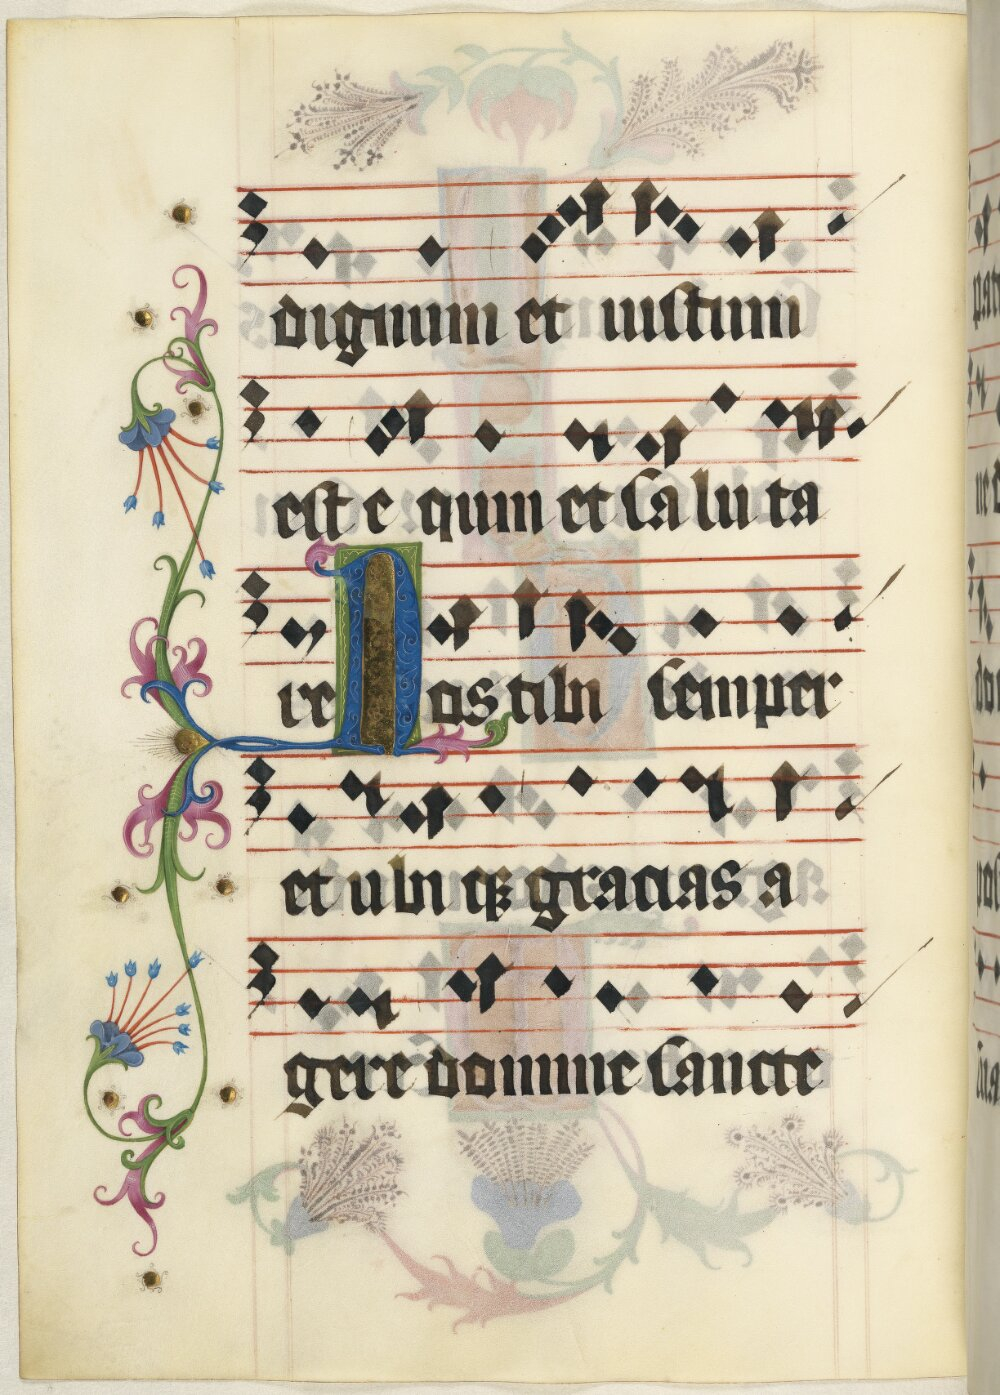 dignum et iustum
est e quum et saluta
re Nos tibi semper
et ubiqꝫ gracias a
gere domine sancte